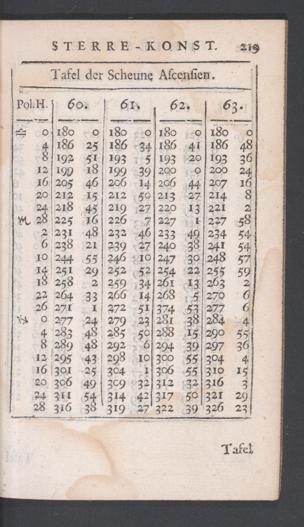 STERRE-KONST. 219
Tafel der Scheune Ascensien.
Pol.H. 60. 61. 62. 63.
♎ 0 180 0 180 0 180 0 180 0
4 186 25 186 34 186 41 186 48
8 192 51 193 5 193 20 193 36
12 199 18 199 39 200 0 200 24
16 205 46 206 14 206 44 207 16
20 212 15 212 50 213 27 214 8
24 218 45 219 27 220 13 221 2
♏ 28 225 16 226 7 227 1 227 58
2 231 48 232 46 233 49 234 54
6 238 21 239 27 240 38 241 54
10 244 55 246 10 247 30 248 57
14 251 29 252 52 254 22 255 59
18 258 2 259 34 261 13 263 2
22 264 33 266 14 268 5 270 6
26 271 1 272 51 274 53 277 6
♐ 0 277 24 279 23 281 38 284 4
4 283 48 285 50 288 15 290 55
8 289 48 292 6 294 39 297 36
12 295 43 298 10 300 55 304 4
16 301 25 304 1 306 55 310 15
20 306 49 309 32 312 32 316 3
24 311 54 314 42 317 50 321 29
28 316 38 319 27 322 39 326 23
Tafel